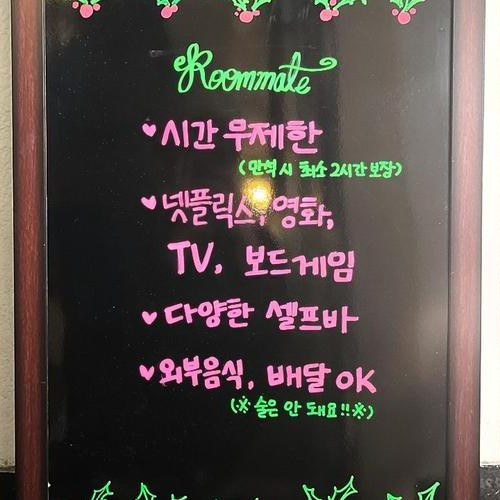 Roommate
♥시간 무제한
(만석 시 최소 2시간 보장)
♥넷플릭스, 영화,
TV, 보드게임
♥다양한 셀프바
♥외부음식, 배달 OK
(※ 술은 안 돼요!!※)